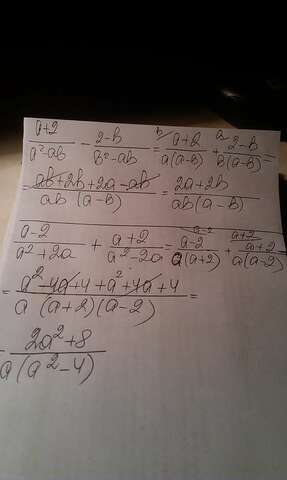 (a+2)/(a²-ab) - (2-b)/(b²-ab) = (a+2)/(a(a-b)) ᵇ⁄ + (2-b)/(b(a-b)) ᵃ⁄ =
= (ab+2b+2a-ab)/(ab(a-b)) = (2a+2b)/(ab(a-b))
(a-2)/(a²+2a) + (a+2)/(a²-2a) = (a-2)/(a(a+2)) ᵃ⁻²⁄ + (a+2)/(a(a-2)) ᵃ⁺²⁄
= (a²-4a+4+a²+4a+4)/(a(a+2)(a-2)) =
- (2a²+8)/(a(a²-4))